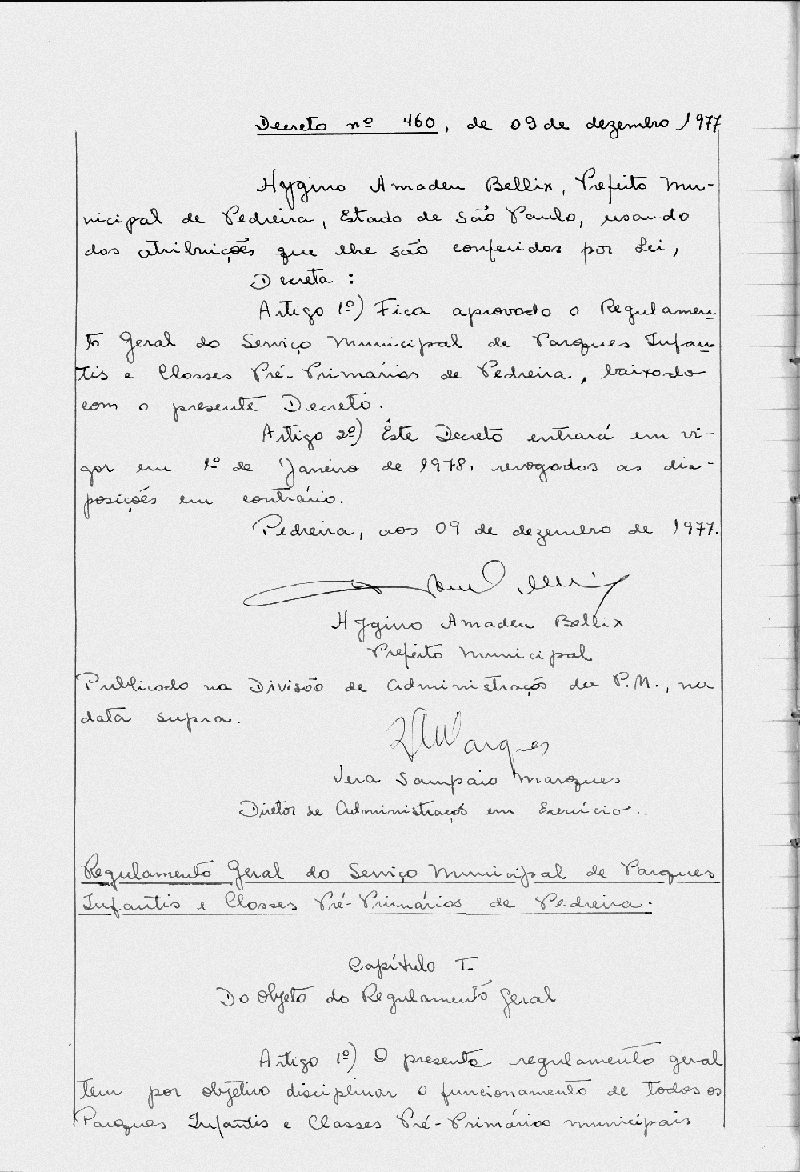 Decreto nº 460, de 09 de dezembro 1977
Hygino Amadeu Bellix, Prefeito Mu-
nicipal de Pedreira, Estado de São Paulo, usando
das atribuições que lhe são conferidas por Lei,
Decreta:
Artigo 1º) Fica aprovado o Regulamen-
to Geral do Serviço Municipal de Parques Infan-
tis e Classes Pré-Primárias de Pedreira, baixado
com o presente Decreto.
Artigo 2º) Este Decreto entrará em vi-
gor em 1º de Janeiro de 1978, revogadas as dis-
posições em contrário.
Pedreira, aos 09 de dezembro de 1977.
Hygino Amadeu Bellix
Prefeito Municipal
Publicado na Divisão de Administração da P.M., na
data supra.
Marques
Vera Sampaio Marques
Diretor de Administração em Exercício.
Regulamento Geral do Serviço Municipal de Parques
Infantis e Classes Pré-Primárias de Pedreira.
Capítulo I.
Do Objeto do Regulamento Geral
Artigo 1º) O presente regulamento geral
tem por objetivo disciplinar o funcionamento de todos os
Parques Infantis e Classes Pré-Primárias municipais